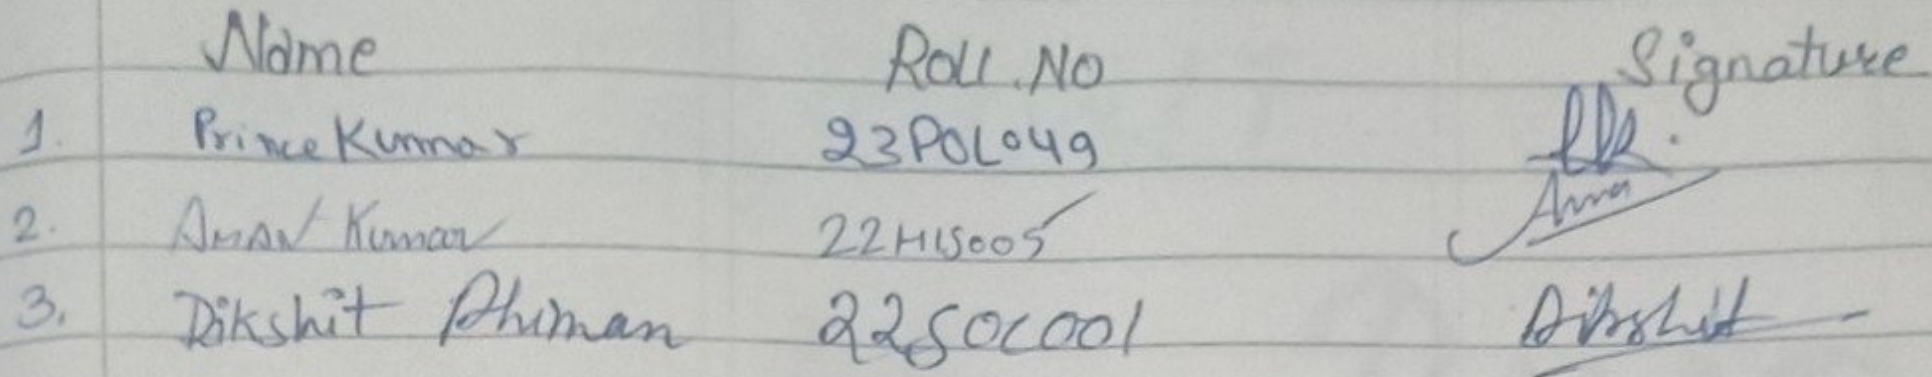 Name Roll.No Signature
1. Prince Kumar 23POL049
2. Aman Kumar 22HIS005 Aman
3. Dikshit Dhiman 22SOC001 Dikshit